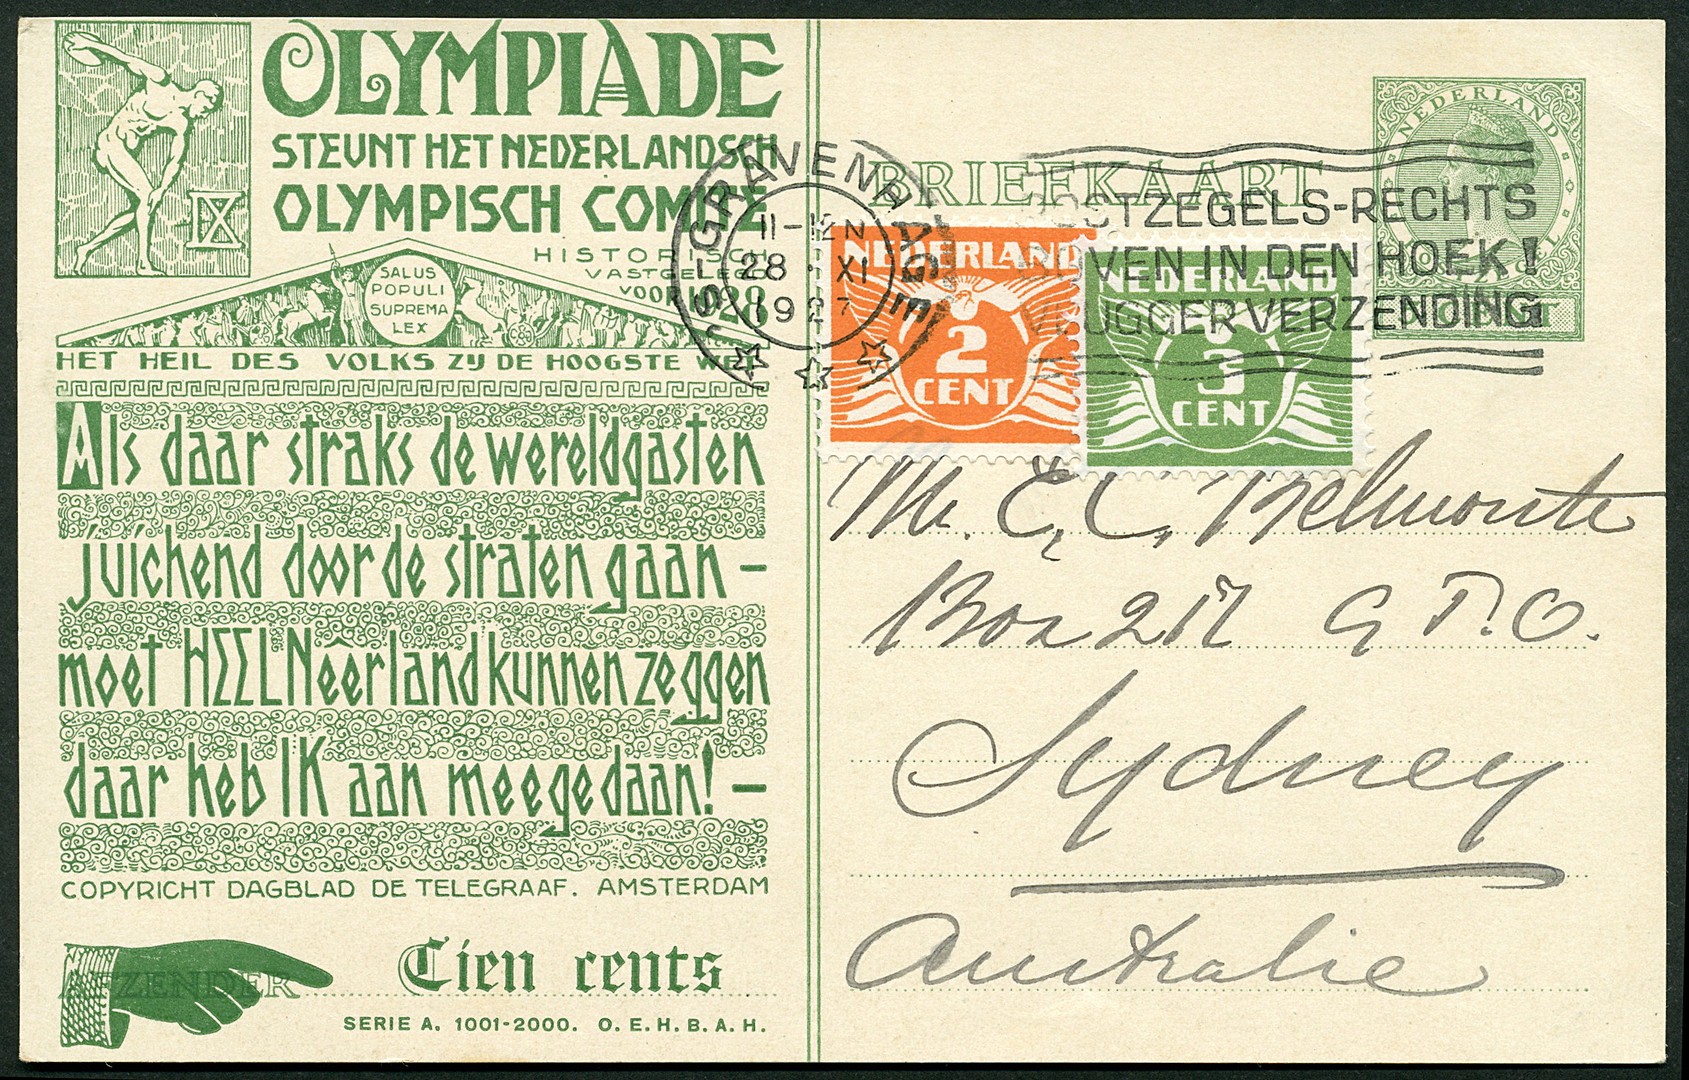 OLYMPIADE
STEUNT HET NEDERLANDSCH
OLYMPISCH COMITE
IX
HISTORISCH
VASTGELEGD
VOOR 1928
SALUS
POPULI
SUPREMA
LEX
HET HEIL DES VOLKS ZY DE HOOGSTE WET
Als daar straks de wereldgasten
juichend door de straten gaan –
moet HEEL Nêerland kunnen zeggen
daar heb IK aan meegedaan! –
COPYRICHT DAGBLAD DE TELEGRAAF. AMSTERDAM
AFZENDER
Tien cents
SERIE A. 1001-2000. O. E. H. B. A. H.
BRIEFKAART
'S GRAVENHAGE
11-12 N
28 XI
1927
POSTZEGELS-RECHTS
BOVEN IN DEN HOEK!
VLUGGER VERZENDING
NEDERLAND
NEDERLAND
2
CENT
NEDERLAND
3
CENT
Mr. E. C. Belmonte
Box 217 G.P.O.
Sydney
Australie